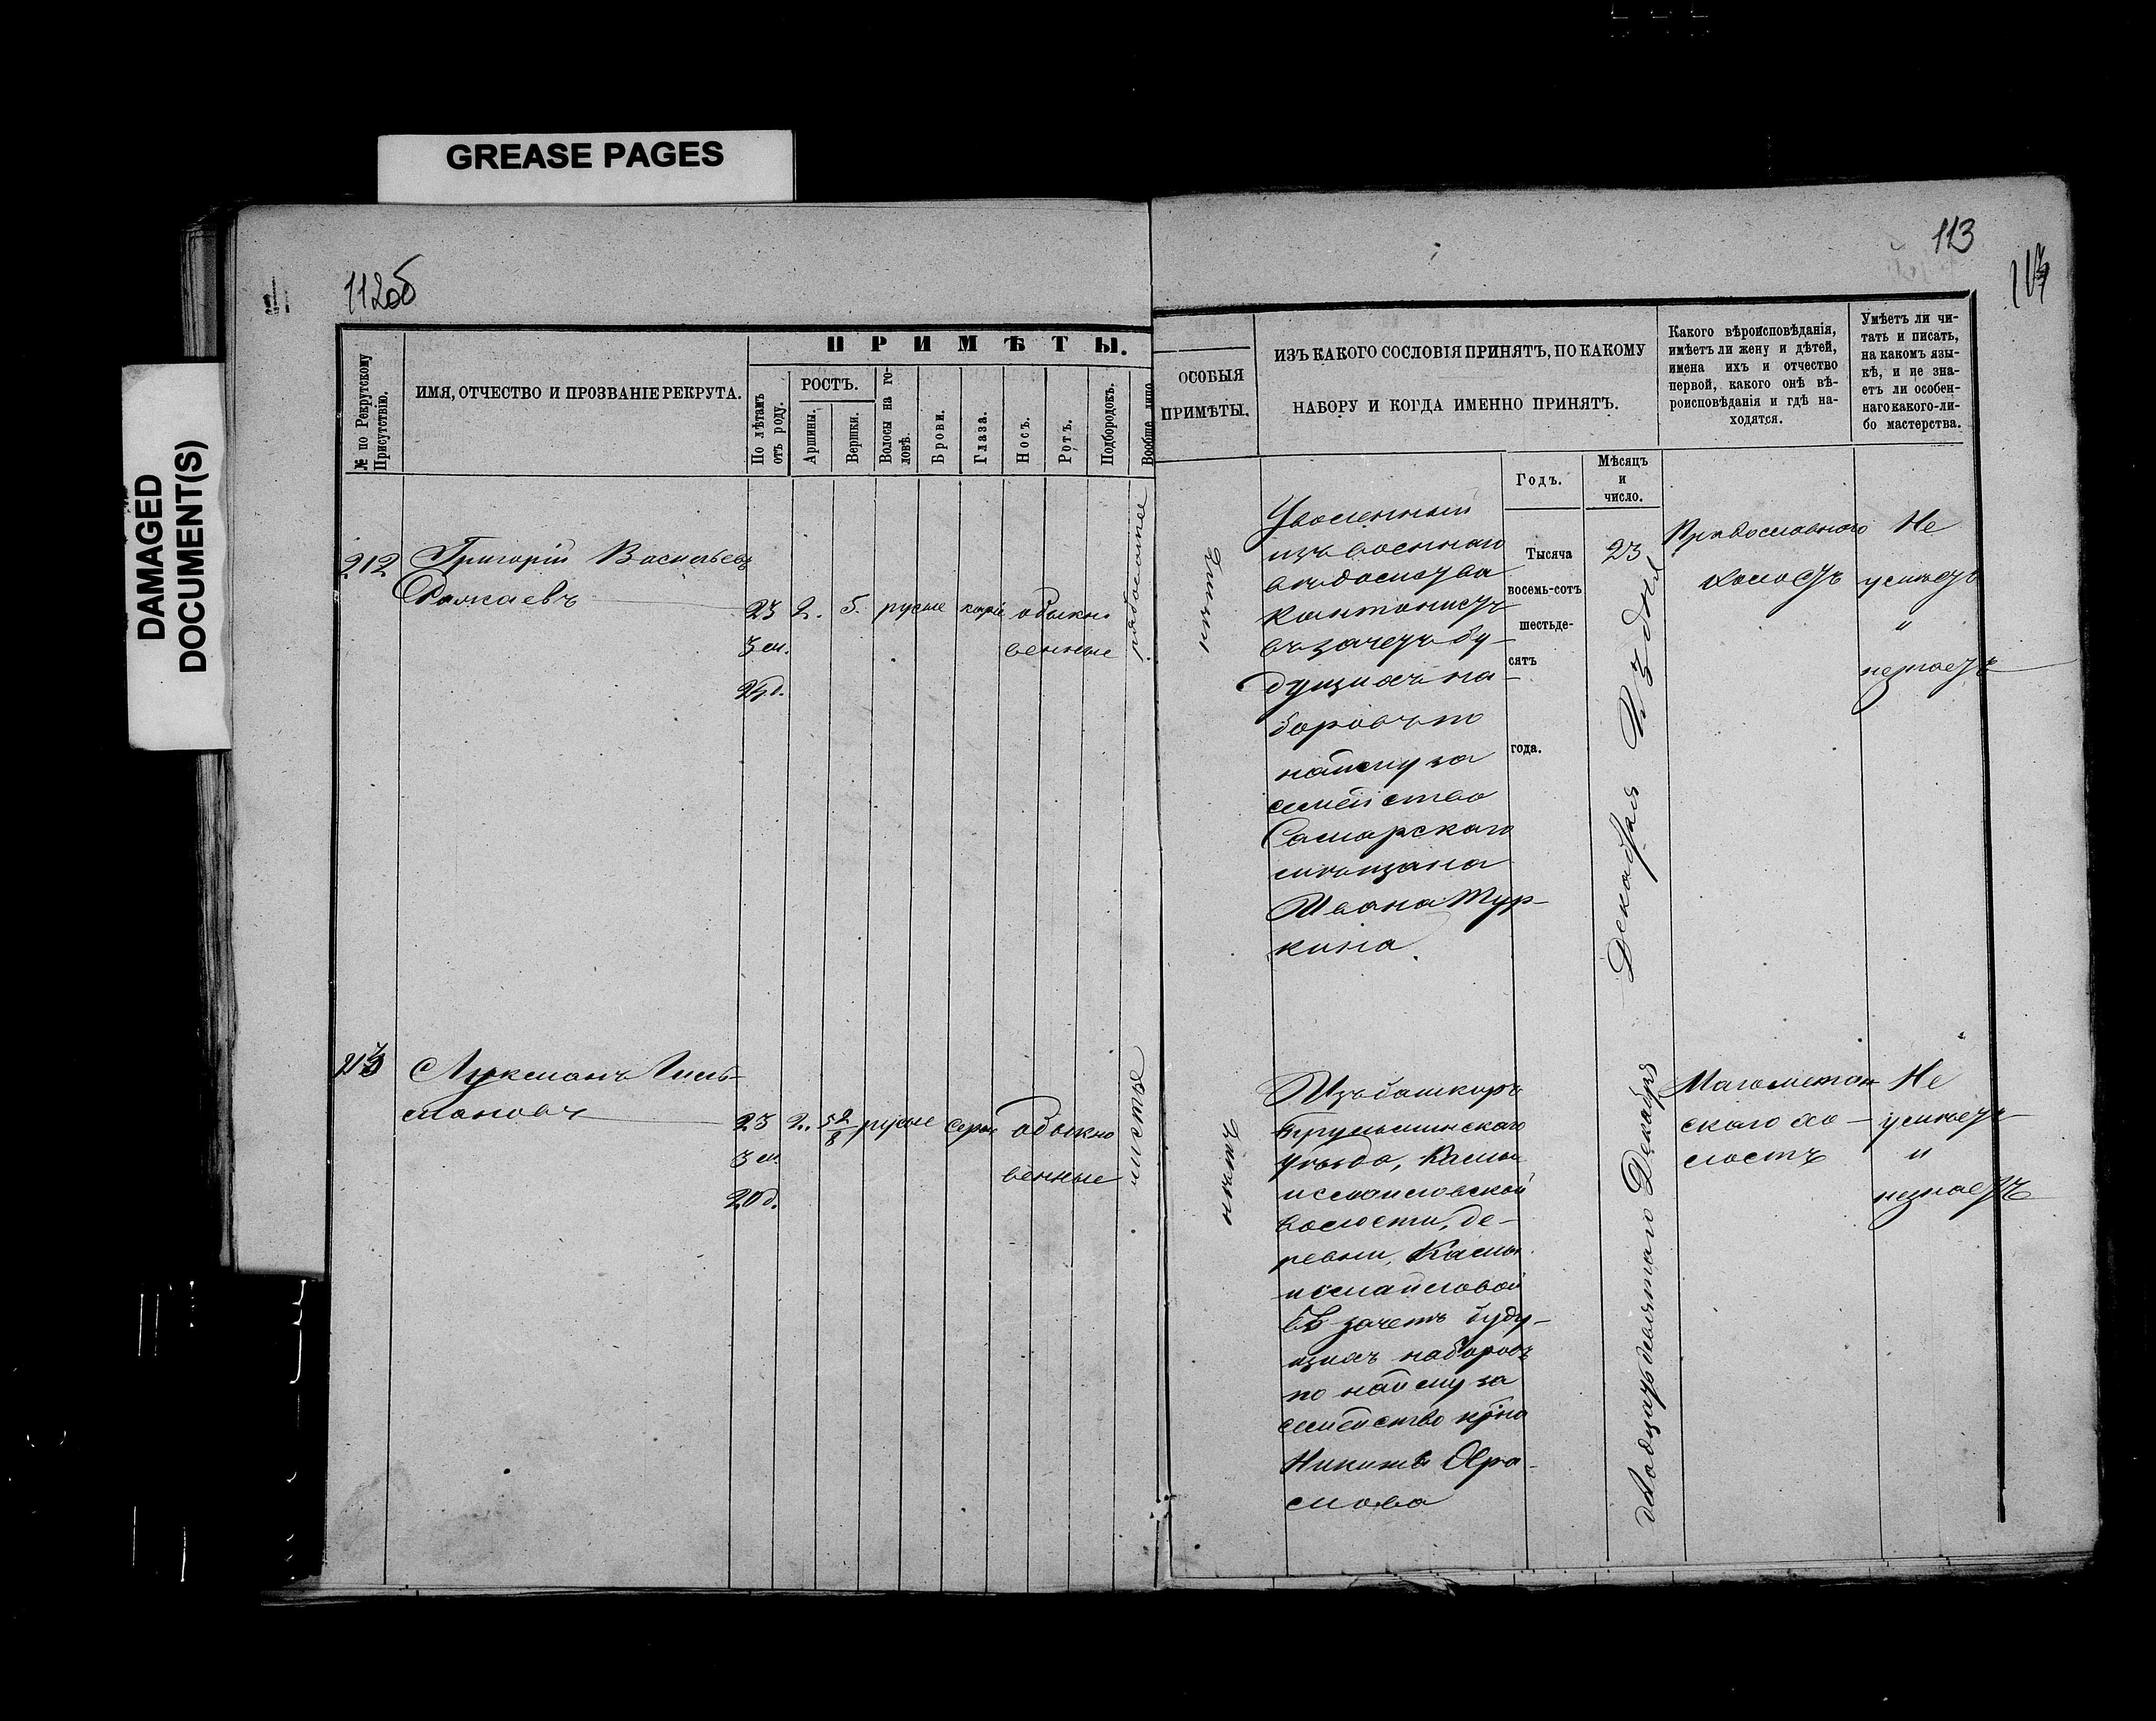 GREASE PAGES
DAMAGED
DOCUMENT(S)
112об
№ по Рекрутскому
Присутствію.
ИМЯ, ОТЧЕСТВО И ПРОЗВАНІЕ РЕКРУТА.
ПРИМѢТЫ.
По лѣтамъ
отъ роду.
РОСТЪ.
Аршины.
Вершки.
Волосы на го-
ловѣ.
Брови.
Глаза.
Носъ.
Ротъ.
Подбородокъ.
Вообще лицо
212
Григорій Васильевъ
23
3 м.
24 д.
2.
5.
русые
каріе
обыкно
венные
рябоватое
213
Лукманъ
23
3 м.
20 д.
2.
5 2/8
русые
серые
обыкно
венные
чистое
113
ОСОБЫЯ
ПРИМѢТЫ.
ИЗЪ КАКОГО СОСЛОВІЯ ПРИНЯТЪ, ПО КАКОМУ
НАБОРУ И КОГДА ИМЕННО ПРИНЯТЪ.
Какого вѣроисповѣданія,
имѣетъ ли жену и дѣтей,
имена ихъ и отчество
первой, какого онѣ вѣ-
роисповѣданія и гдѣ на-
ходятся.
Умѣетъ ли чи-
тать и писать,
на какомъ язы-
кѣ, и не зна-
етъ ли особен-
наго какого-ли-
бо мастерства.
Годъ.
Мѣсяцъ
и
число.
нѣтъ
Уволенный
изъ военнаго
вѣдомства
кантонистъ
въ зачетъ бу-
дущихъ на-
боровъ по
найму за
семейство
Самарскаго
мѣщана
Ивана Тур-
кина
Тысяча
восемь-сотъ
шестьде-
сятъ
года.
23
Декабря 23 дня
Православнаго
холостъ
Не
умѣетъ
"
незнаетъ
нѣтъ
Изъ башкиръ
Бугульминскаго
уѣзда,
волости, де-
ревни,
Въ зачетъ буду-
щихъ наборовъ
по найму за
семейство
Никиты
двадцать девятаго Декабря
Магометан
скаго хо-
лостъ
Не
умѣетъ
и
незнаетъ